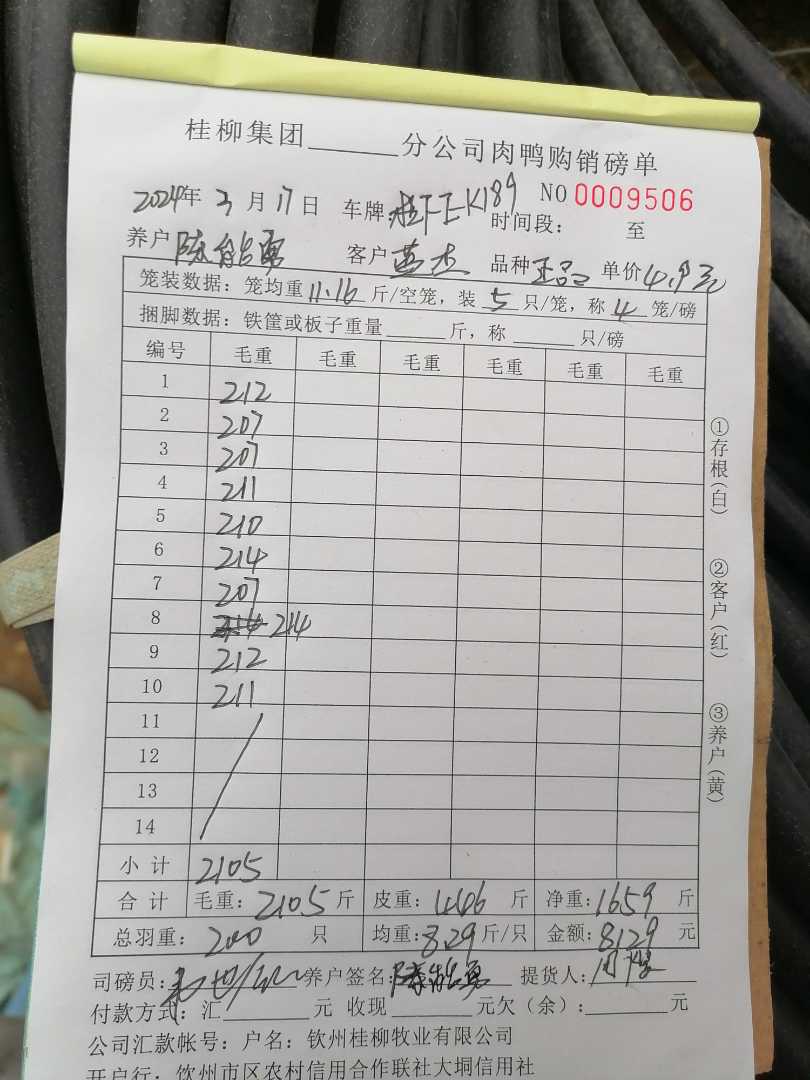 桂柳集团______分公司肉鸭购销磅单
2024年 3月17日 车牌 K189 NO 0009506
时间段： 至
养户 陈能勇 客户 蓝杰 品种 正品 单价 4.9元
笼装数据：笼均重 11.16 斤/空笼，装 5 只/笼，称 4 笼/磅
捆脚数据：铁筐或板子重量______斤，称______只/磅
编号 毛重 毛重 毛重 毛重 毛重 毛重
1 212
2 207
3 207
4 211
5 210
6 214
7 207
8 214
9 212
10 211
11
12
13
14
小计 2105
合计 毛重：2105 斤 皮重：446 斤 净重：1659 斤
总羽重：200 只 均重：8.29 斤/只 金额：8129 元
司磅员： 养户签名：陈能勇 提货人：
付款方式：汇______元 收现______元欠（余）：______元
公司汇款帐号：户名：钦州桂柳牧业有限公司
开户行：钦州市区农村信用合作联社大垌信用社
①存根(白)
②客户(红)
③养户(黄)